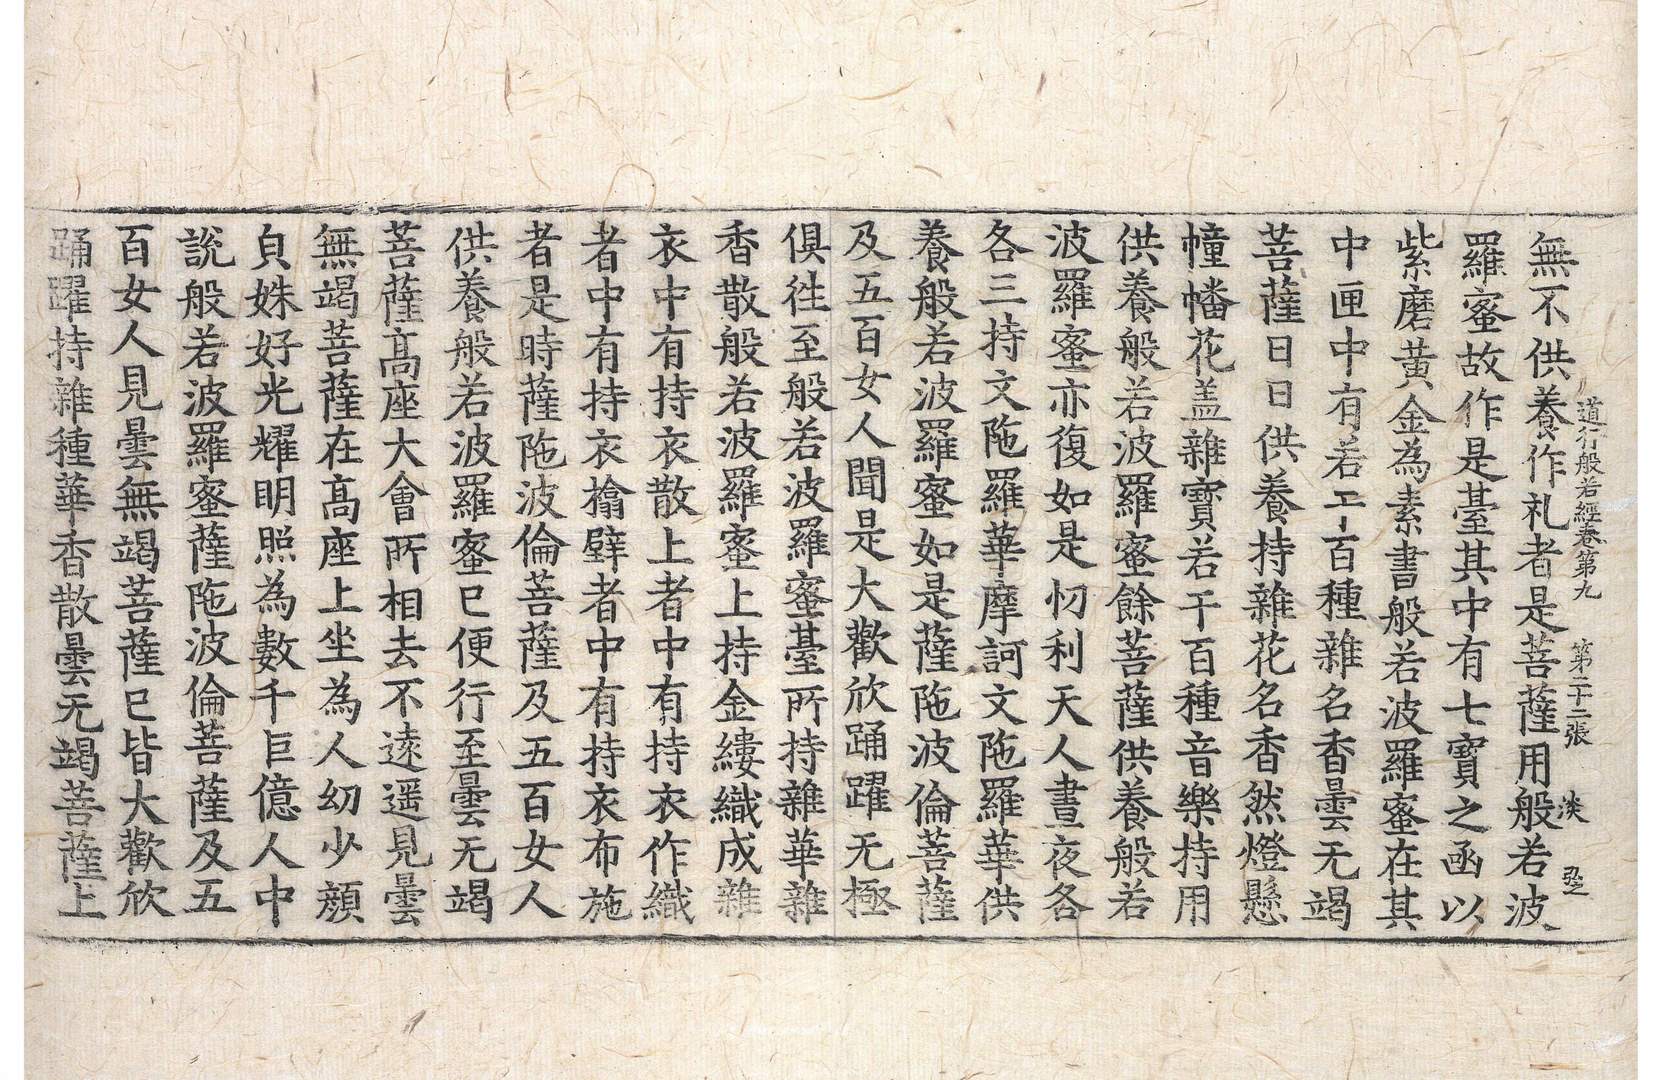 道行般若經卷第九　第二十二張　淡
無不供養作礼者是菩薩用般若波
羅蜜故作是䑓其中有七寶之函以
紫磨黃金為素書般若波羅蜜在其
中匣中有若干百種雜名香曇无竭
菩薩日日供養持雜花名香然燈懸
幢幡花盖雜寶若干百種音樂持用
供養般若波羅蜜餘菩薩供養般若
波羅蜜亦復如是忉利天人晝夜各
各三持文陁羅華摩訶文陁羅華供
養般若波羅蜜如是薩陁波倫菩薩
及五百女人聞是大歡欣踊躍无極
俱徃至般若波羅蜜䑓所持雜華雜
香散般若波羅蜜上持金縷織成雜
衣中有持衣散上者中有持衣作織
者中有持衣㩉壁者中有持衣布施
者是時薩陁波倫菩薩及五百女人
供養般若波羅蜜已便行至曇无竭
菩薩高座大會所相去不遠遥見曇
無竭菩薩在高座上坐為人㓜少顔
皃姝好光耀明照為數千巨億人中
說般若波羅蜜薩陁波倫菩薩及五
百女人見曇無竭菩薩已皆大歡欣
踊躍持雜種華香散曇无竭菩薩上